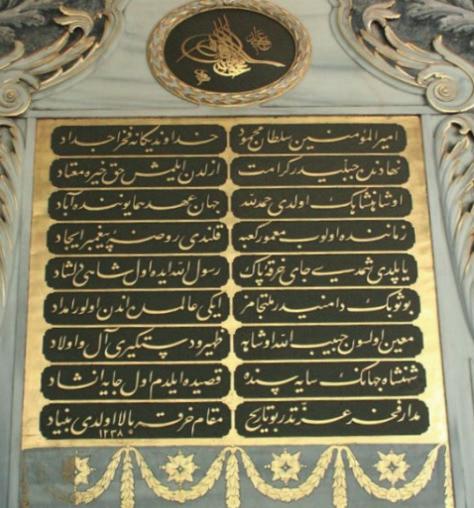 امير المؤمنين سلطان محمود خداوند يكانه فخر اجداد
نهادندن جبليدر كرامت ازلدن ايلمش حق خيره معتاد
او شاهنشاهك اولدى حمد لله جهان عهد همايوننده آباد
زماننده اولوب معمور كعبه قلندى روضۀ پيغمبر ايجاد
ياپلدى شمدى جاى خرقۀ پاك رسول الله ايده اول شاهى دلشاد
بو ثوبك دامنيدر ملتجامز ايكى عالمده اندن اولور امداد
معين اولسون حبيب الله او شاهه ظهير و دستكيرى آل و اولاد
شهنشاه جهانك سايه سنده قصيده ايلدم اول جايه انشاد
مدار فخر عزتدر بو تاريخ مقام خرقه بالا اولدى بنياد
١٢٣٨